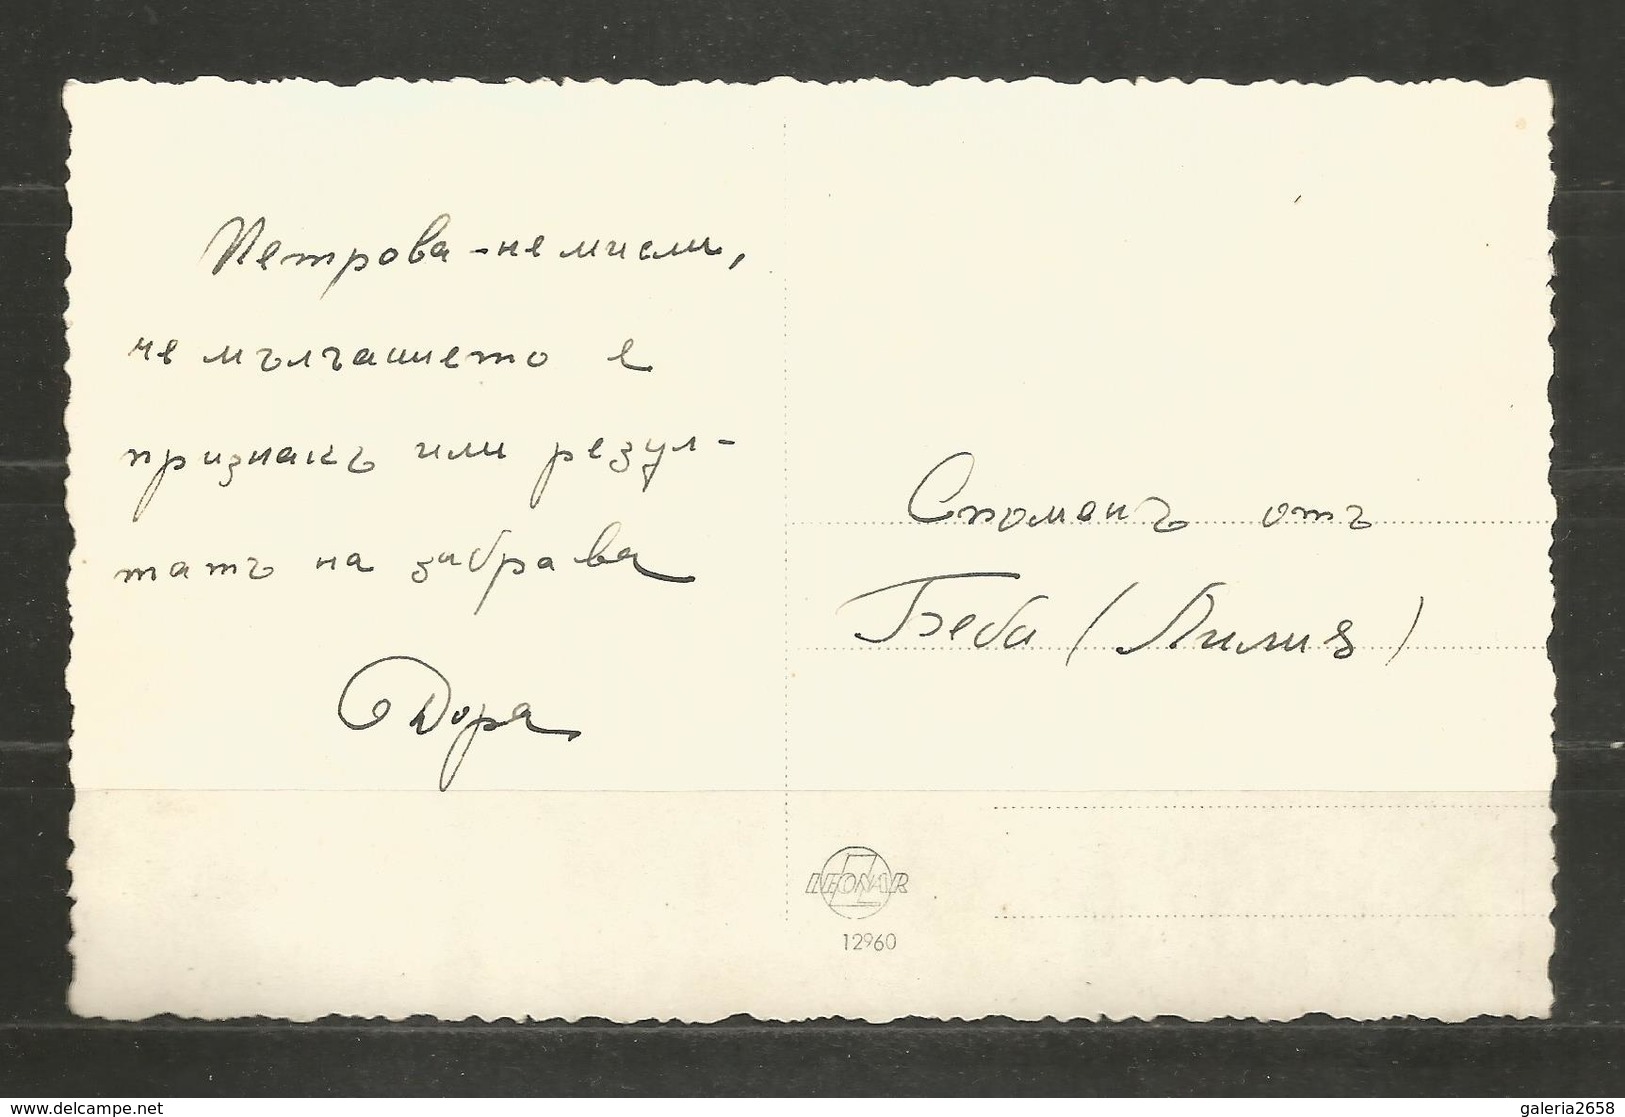 Петрова - не мисли,
че мълчанието е
признакъ или резул-
татъ на забрава
Дора
Споменъ отъ
Беба (Лилия)
LEONAR
12960
www.delcampe.net
galeria2658